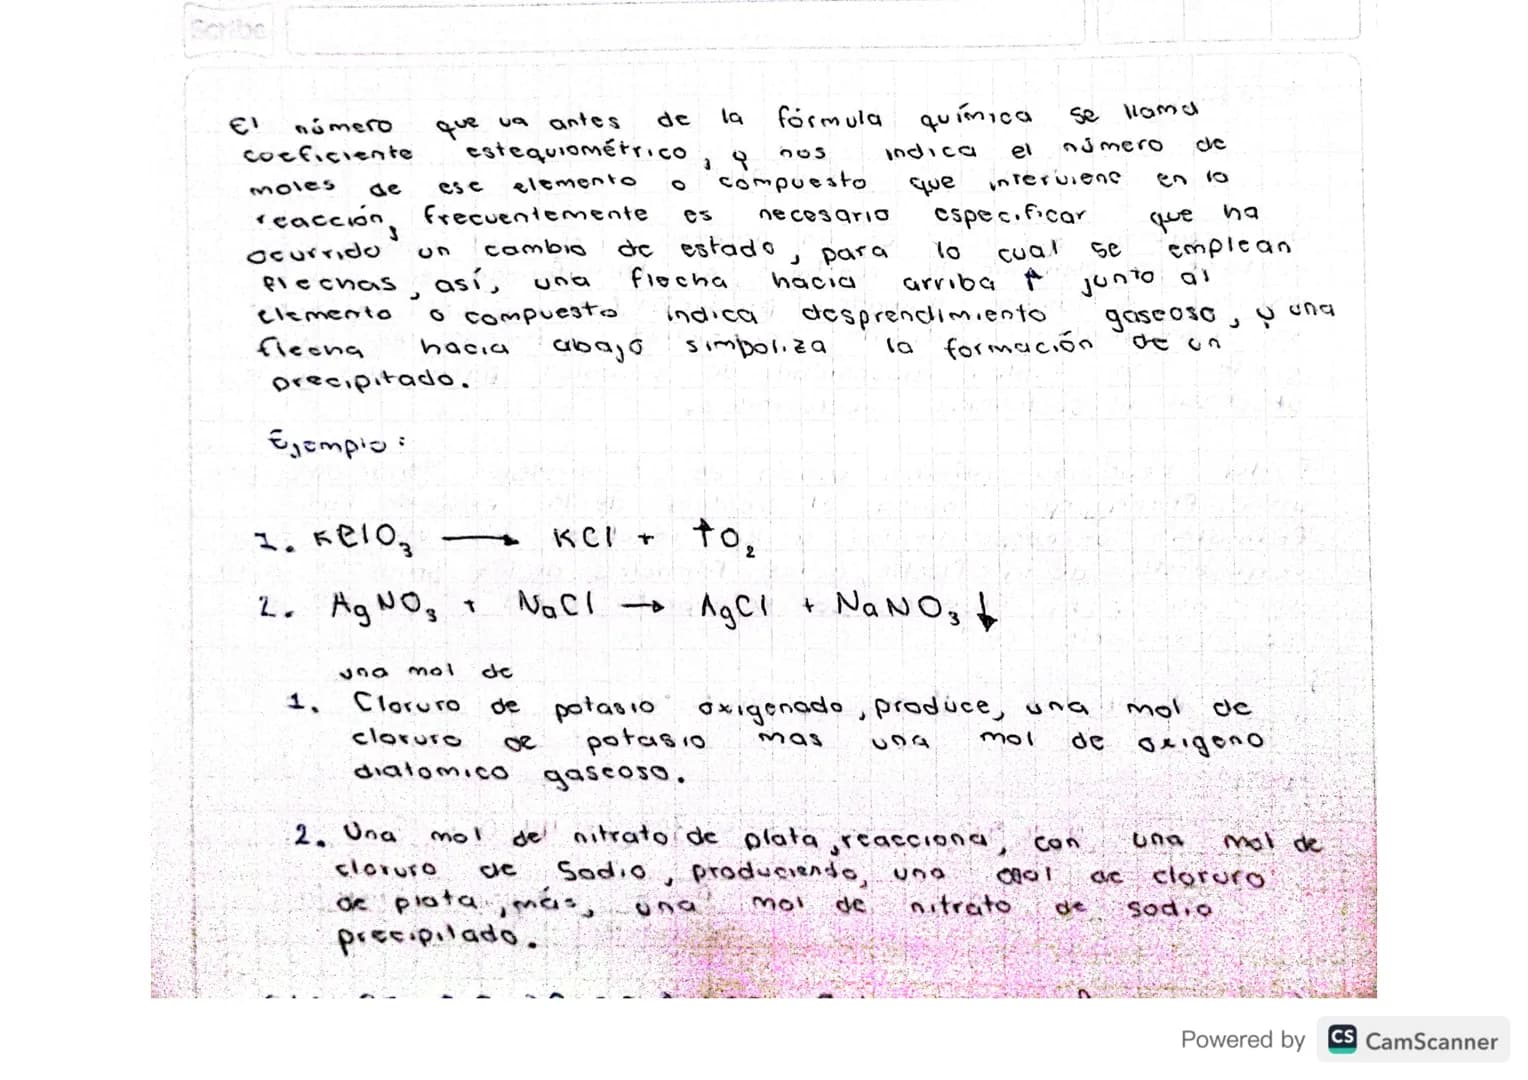 Scribe
El número que va antes de la fórmula química se llama
coeficiente estequiométrico, y nos indica el número de
moles de ese elemento o compuesto que interviene en la
reacción, frecuentemente es necesario especificar que ha
ocurrido un cambio de estado, para lo cual se emplean
flechas, así, una flecha hacia arriba ↑ junto al
elemento o compuesto indica desprendimiento gaseoso, y una
flecha hacia abajo simboliza la formación de un
precipitado.
Ejemplo:
1. KClO₃ → KCl + ↑O₂
2. AgNO₃ + NaCl → AgCl + NaNO₃ ↓
una mol de
1. Cloruro de potasio oxigenado, produce, una mol de
cloruro de potasio mas una mol de oxigeno
diatomico gaseoso.
2. Una mol de nitrato de plata, reacciona, con una mol de
cloruro de Sodio, produciendo, una mol de cloruro
de plata, más, una mol de nitrato de sodio
precipitado.
Powered by CS CamScanner